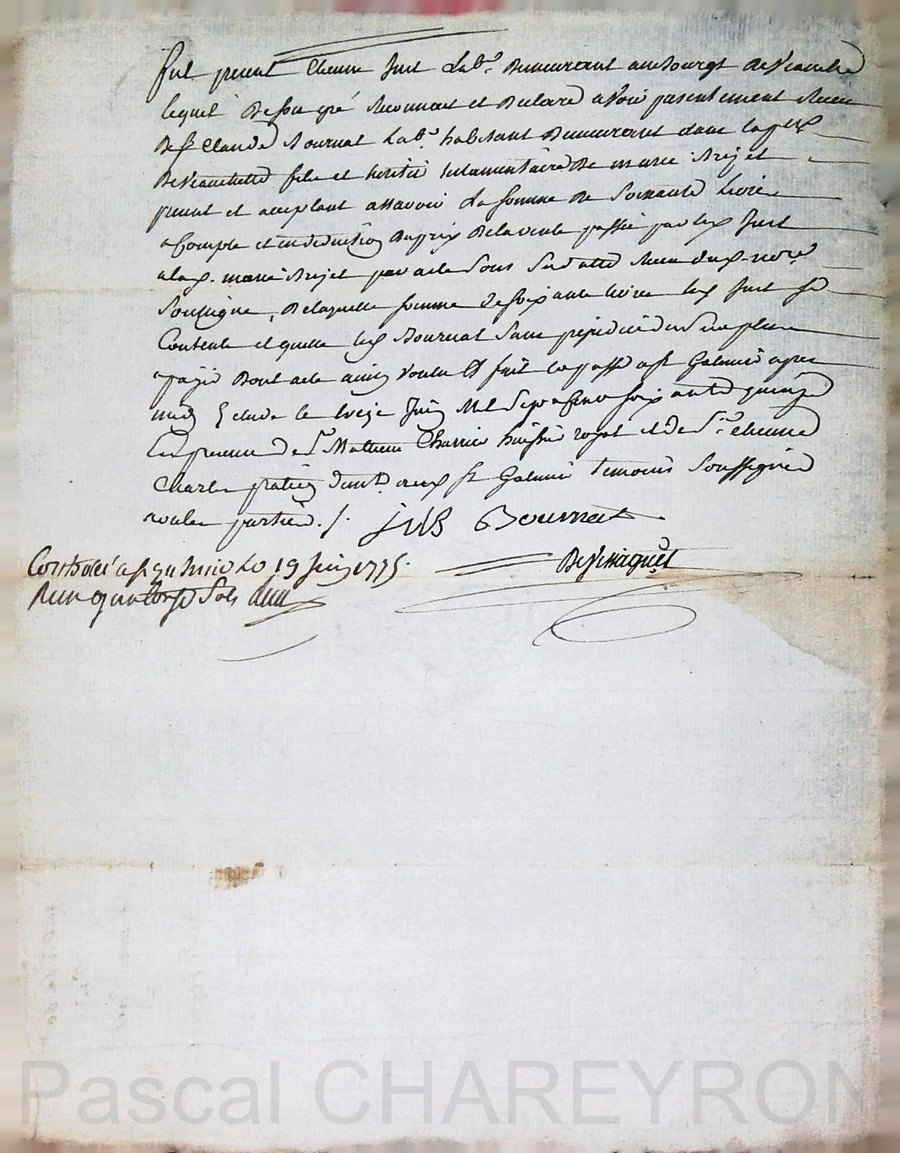 fut present Etienne Just Lab.r Demeurant au bourgt de Veauche
lequel De son gré Reconnait et Declare avoir presentement Receu
De s.r Claude Journat Lab.r habitant Demeurant dans la p.sse
De Veauchette fils et heritié testamentaire De marie Brejet
present et acceptant assavoir La somme De Soixante Livre
a Compte et en deduction Du prix De la vente passée par led. Just
a lad. marie Brejet par acte sous Sa datte Receu du d. no.re
Soussigné, De laquelle somme de soixante livre led. Just se
Contente et quitte led. Journat Sans prejudice du
a payé Dont acte ainsy voulu Et fait et passé a s.t Galmié apres
midy Etude le treize Juin Mil Sept Cent soix ante quinze
En presence de s.r Mathieu Charrier huissié royal et de s.r etienne
Charle praticien Dem.t aud. S.t Galmié temoins Soussignés
partie ./. just Journat
Controlé a s.t galmié Le 19 Juin 1775.
Receu quatorze Sols
Pascal CHAREYRON